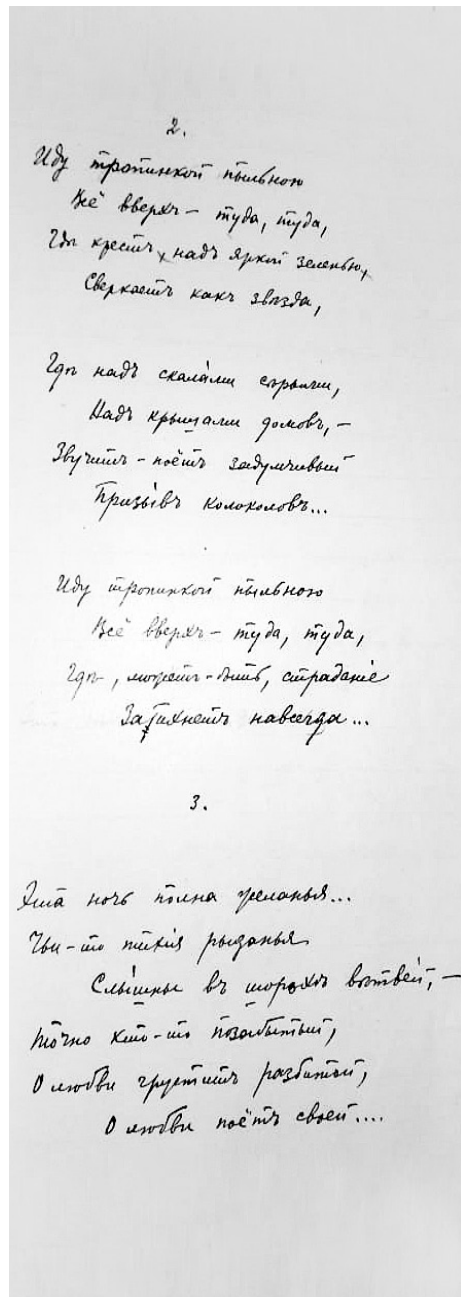 2.
Иду тропинкой пыльною
Всё вверхъ – туда, туда,
Гдѣ крестъ, надъ яркой зеленью,
Сверкаетъ какъ звѣзда,
Гдѣ надъ скалами сѣрыми,
Надъ крышами домовъ, –
Звучитъ – поётъ задумчивый
Призывъ колоколовъ...
Иду тропинкой пыльною
Всё вверхъ – туда, туда,
Гдѣ, можетъ-быть, страданіе
Затихнетъ навсегда...
3.
Эта ночь полна желанья...
Чьи-то тихія рыданья
Слышны въ шорохѣ вѣтвей, –
Точно кто-то позабытый,
О любви груститъ разбитой,
О любви поётъ своей....